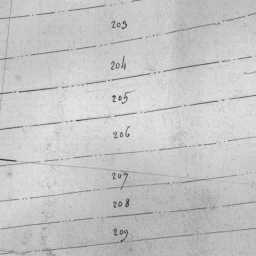 203
204
205
206
207
208
209